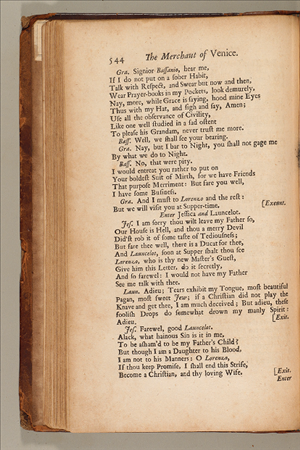 544 The Merchant of Venice.
Gra. Signior Bassanio, hear me,
If I do not put on a sober Habit,
Talk with Respect, and Swear but now and then,
Wear Prayer-books in my Pockets, look demurely,
Nay, more, while Grace is saying, hood mine Eyes
Thus with my Hat, and sigh and say, Amen;
Use all the observance of Civility,
Like one well studied in a sad ostent
To please his Grandam, never trust me more.
Bass. Well, we shall see your bearing.
Gra. Nay, but I bar to Night, you shall not gage me
By what we do to Night.
Bass. No, that were pity.
I would entreat you rather to put on
Your boldest Suit of Mirth, for we have Friends
That purpose Merriment: But fare you well,
I have some Business.
Gra. And I must to Lorenzo and the rest:
But we will visit you at Supper-time. [Exeunt.
Enter Jessica and Launcelot.
Jes. I am sorry thou wilt leave my Father so,
Our House is Hell, and thou a merry Devil
Did'st rob it of some taste of Tediousness;
But fare thee well, there is a Ducat for thee,
And Launcelot, soon at Supper shalt thou see
Lorenzo, who is thy new Master's Guest,
Give him this Letter, do it secretly,
And so farewel: I would not have my Father
See me talk with thee.
Laun. Adieu; Tears exhibit my Tongue, most beautiful
Pagan, most sweet Jew; if a Christian did not play the
Knave and get thee, I am much deceived; But adieu, these
foolish Drops do somewhat drown my manly Spirit:
Adieu. [Exit.
Jes. Farewel, good Launcelot.
Alack, what hainous Sin is it in me,
To be asham'd to be my Father's Child?
But though I am a Daughter to his Blood,
I am not to his Manners: O Lorenzo,
If thou keep Promise, I shall end this Strife,
Become a Christian, and thy loving Wife. [Exit.
Enter